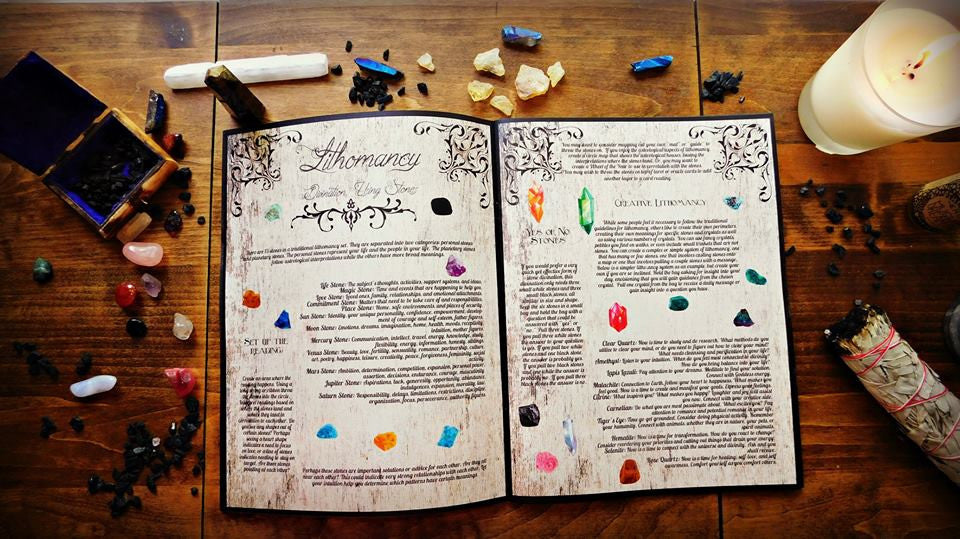 Lithomancy
Divination Using Stones
There are 13 stones in a traditional lithomancy set. They are separated into two categories: personal stones
and planetary stones. The personal stones represent your life and the people in your life. The planetary stones
follow astrological interpretations while the others have more broad meanings.
Life Stone: The subject's thoughts, activities, support systems and ideas.
Magic Stone: Time and events that are happening or going to help you.
Love Stone: Loved ones, family, relationships, and emotional attachments.
Commitment Stone: Matters that need to be taken care of and responsibilities.
Place Stone: Home, safe environments, and places of security.
Sun Stone: Identity, your unique personality, confidence, empowerment, develop-
ment of courage and self esteem, father figures.
Moon Stone: Emotions, dreams, imagination, home, health, moods, receptivity,
intuition, mother figures.
Mercury Stone: Communication, intellect, travel, energy, knowledge, study,
flexibility, energy, information, honesty, siblings.
Venus Stone: Beauty, love, fertility, sensuality, romance, partnership, culture,
art, poetry, happiness, leisure, creativity, peace, forgiveness, femininity, social
activity.
Mars Stone: Ambition, determination, competition, expansion, personal power,
assertion, decisions, endurance, courage, masculinity.
Jupiter Stone: Aspirations, luck, generosity, opportunity, abundance,
indulgences, expansion, morality, law.
Saturn Stone: Responsibility, delays, limitations, restrictions, discipline,
organization, focus, perseverance, authority figures.
Set of the
Reading
Create an area where the
reading happens. Using a
long string or ribbon throw
the stones into the circle.
where the stones land and
Do
you see any shapes out of
certain stones? Perhaps
seeing a heart shape
indicates a need to focus
on love, or a line of stones
indicates needing to stay on
target. Are there stones
pointing at each other?
Perhaps those stones are important solutions or advice for each other. Are they not
near each other? This could indicate very strong relationships with each other. Let
your intuition help you determine which patterns have certain meanings.
You may want to consider mapping out your own "mat" or "guide" to
throw the stones on. If you enjoy the astrological aspects of lithomancy,
create a circle map that shows the astrological houses, basing the
interpretations where the stones land. Or, you may want to
create a
You may wish to throw the stones on top of tarot or oracle cards to add
another layer to a card reading.
Yes or No
Stones
If you would prefer a very
quick yet effective form of
stone divination, this
divination only needs three
small white stones and three
small black stones, all
similar in size and shape.
Keep the six stones in a
bag and hold the bag with a
question that could be
answered with "yes" or
"no." Pull three stones. If
you pull three white stones
the answer to your question
is yes. If you pull two white
stones and one black stone
the answer is probably yes.
If you pull two black stones
and one white the answer is
probably no. If you pull
three black stones the
answer is no.
Creative Lithomancy
While some people feel it necessary to follow the traditional
guidelines of lithomancy, others like to create their own parameters
creating their own meanings for specific stones and crystals as well
as using various numbers of crystals. You can use fancy crystals,
pebbles you find on walks, or even include small trinkets that are not
stones. You can create a complex or simple system of lithomancy, one
that has many stones or few, one that involves casting stones onto
a map or one that involves pulling a couple stones with a message.
Below is a simpler lithomancy system as an example, but create your
own if you are so inclined. Hold the bag asking for insight into your
day, envisioning that you will gain guidance from the chosen
crystal. Pull one crystal from the bag to receive a daily message or
gain insight into a question you have.
Clear Quartz: Now is time to study and do research. What methods do you
utilize to clear your mind, or do you need to find time to clear your mind?
What needs cleansing and purification in your life?
Amethyst: Listen to your intuition. What do you feel most connected to divinity?
How do you bring balance into your life?
Lapis Lazuli: Pay attention to your dreams. Meditate to find your solution.
Connect with Goddess energy.
Malachite: Connection to Earth, follow your heart to happiness. What makes you
feel good. Now is a time to create and manifest your goals. Express your feelings.
Citrine: What inspires you? What makes you happy? Laughter and joy feel assist
you now. Connect with your creative side.
Carnelian: Do what you are most passionate about. What excites you? Pay
attention to romance and potential romance in your life.
Tiger's Eye: Time to get grounded. Consider where you need to connect to
your humanity. Connect with animals, whether they are in nature, your pets, or
spirit animals.
Hematite: Now is a time for transformation. How do you react to change?
Consider reordering your priorities and cutting out things that drain your energy.
Selenite: Now is a time to connect with the universe and divinity. Ask and you
shall receive.
Rose Quartz: Now is time for healing, self love, and self
awareness. Comfort yourself as you comfort others.